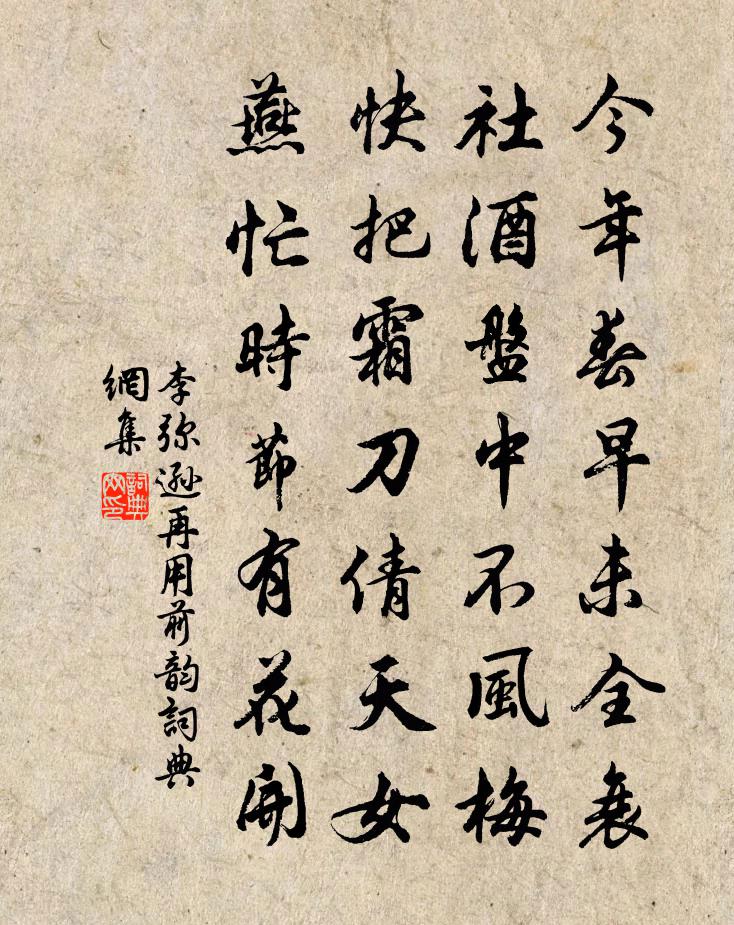 今年春早未全衰
社酒盤中不風梅
快把霜刀倩天女
燕忙時節有花開
李弥遜再用前韵詞典
網集
詞典
网印